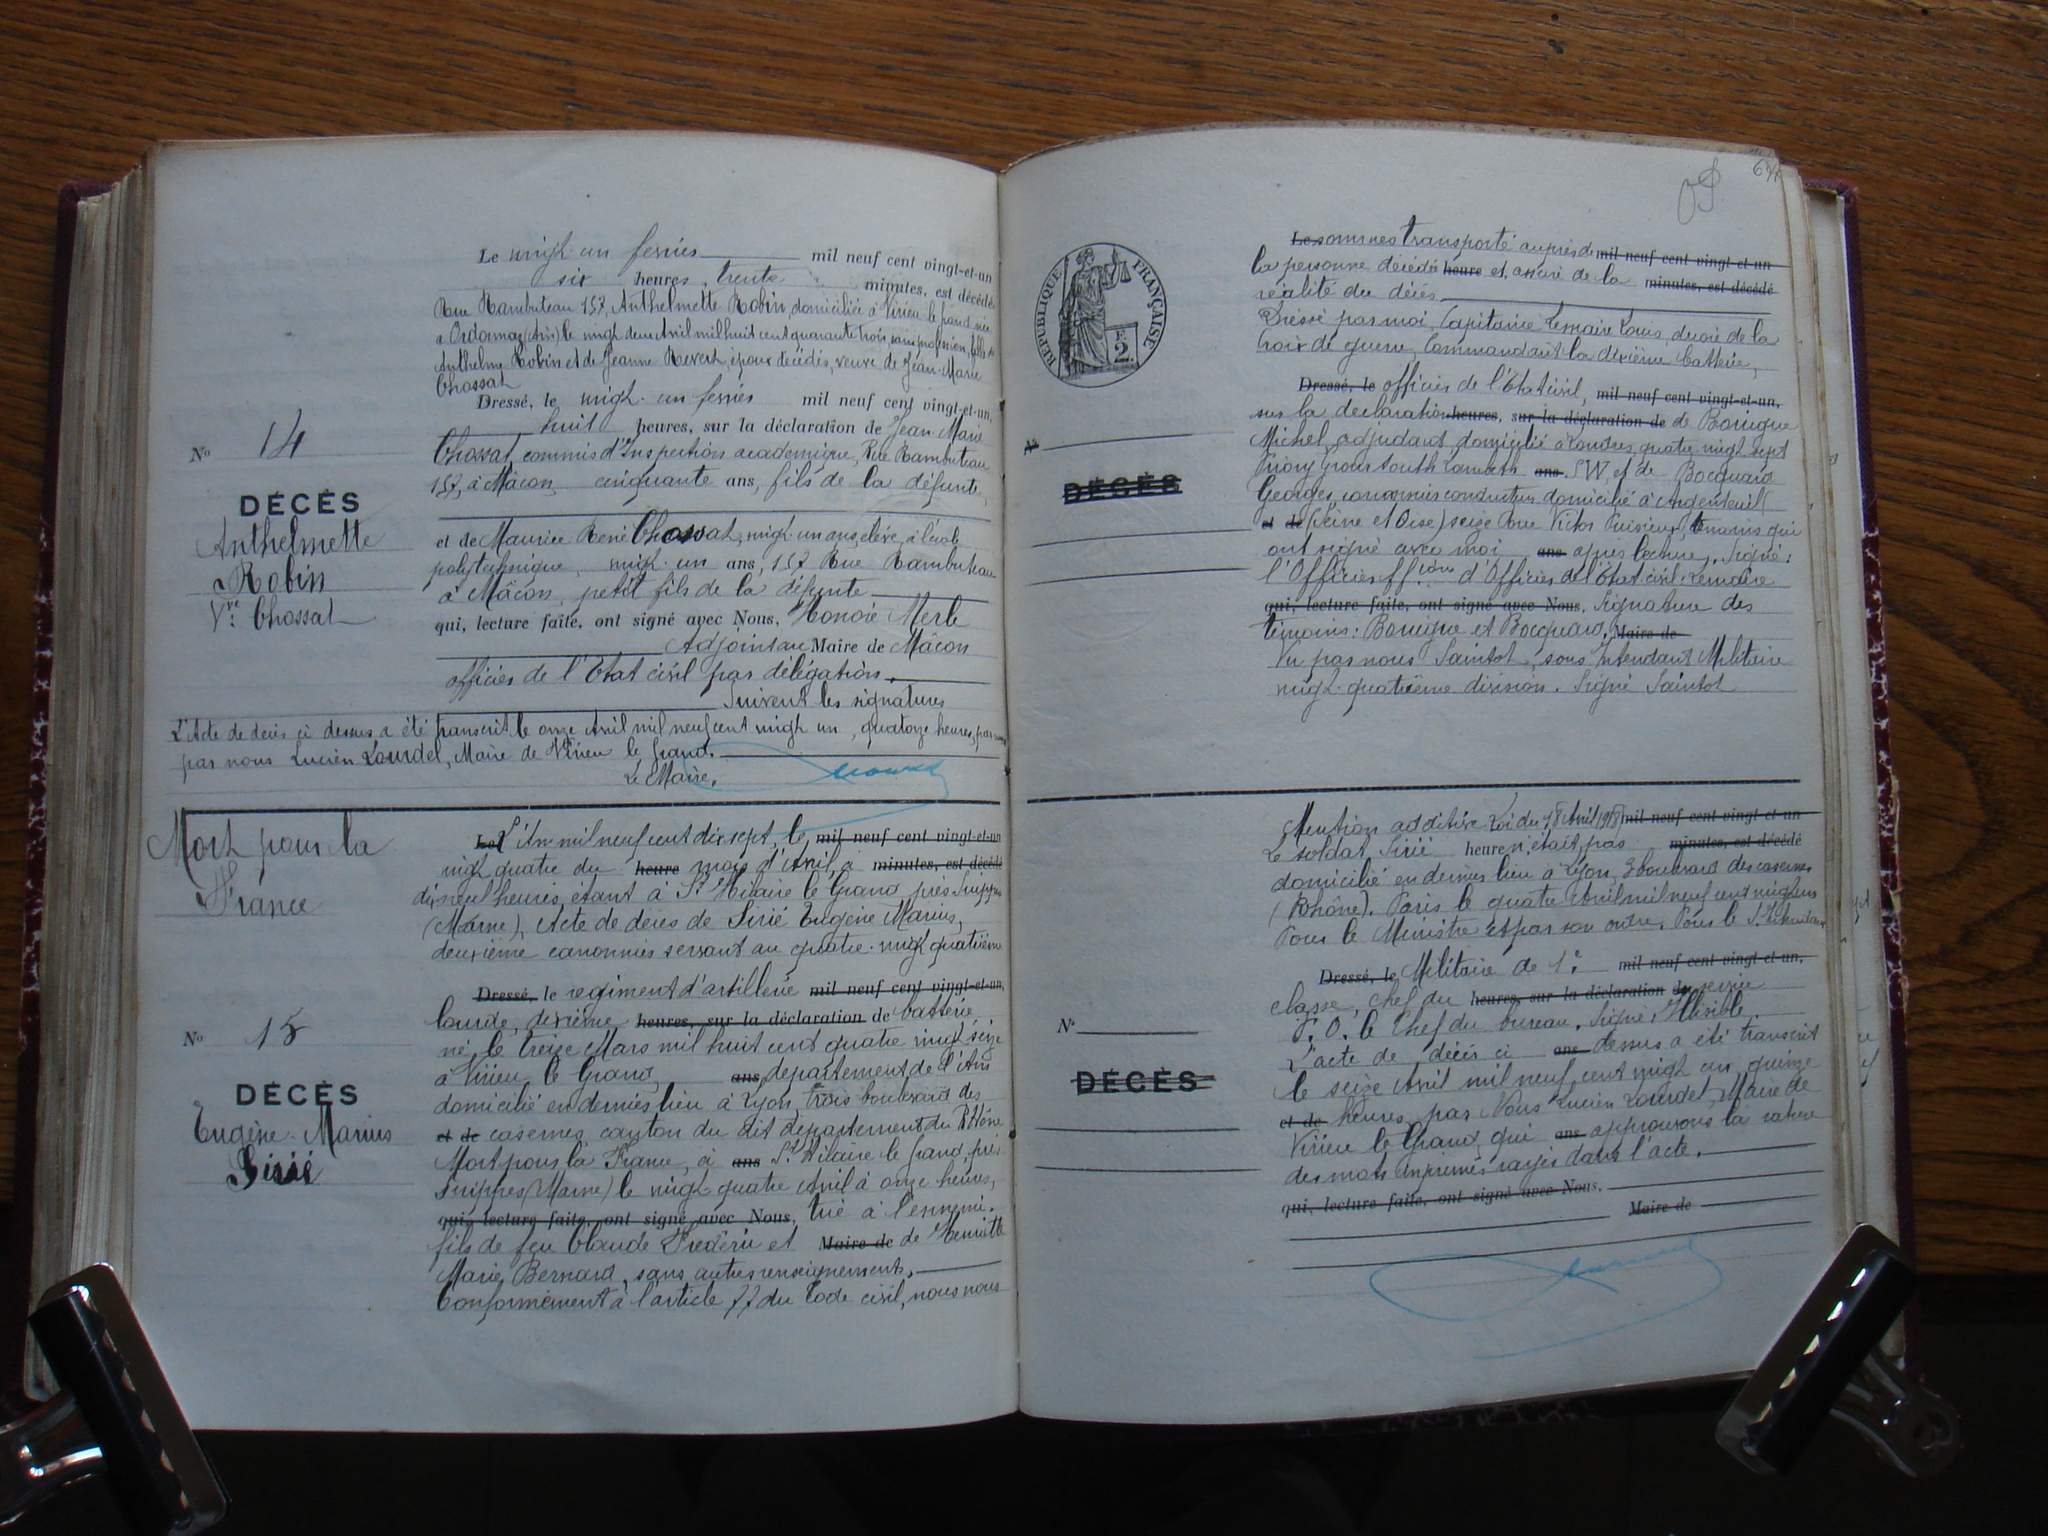 Le vingt-un février mil neuf cent vingt-et-un
six heures, trente minutes, est décédée
Rue Rambuteau 157, Anthelmette Robin, domiciliée à Virieu le grand née
à Ordonnaz (Ain) le vingt deux Avril mil huit cent quarante trois, sans profession, fille de
Anthelme Robin et de Jeanne Revert, époux décédés, veuve de Jean-Marie
Chossat
Dressé, le vingt-un février mil neuf cent vingt-et-un,
huit heures, sur la déclaration de Jean-Marie
No 14
Chossat, commis d'Inspections académique, Rue Rambuteau
157, à Mâcon, cinquante ans, fils de la défunte,
DÉCÈS
Anthelmette
Robin
Vve Chossat
et de Maurice René Chossat, vingt-un ans, élève, à l'école
polytechnique, vingt-un ans, 157 Rue Rambuteau
à Mâcon, petit fils de la défunte
qui, lecture faite, ont signé avec Nous, Honoré Merle
Adjoint au Maire de Mâcon
officier de l'Etat civil par délégation.
Suivent les signatures
L'Acte de décès ci dessus a été transcrit le onze Avril mil neuf cent vingt un, quatorze heures, par nous
par nous Lucien Lourdel, Maire de Virieu le grand.
Le Maire.
Mort pour la
France
Le L'An mil neuf cent dix sept, le mil neuf cent vingt-et-un
vingt quatre du heure mois d'Avril, à minutes, est décédé
dix neuf heures, étant à St Hilaire le Grand, près Suippes
(Marne), Acte de décès de Sirié Eugène Marius,
deuxième canonnier servant au quatre-vingt quatrième
Dressé, le régiment d'artillerie mil neuf cent vingt-et-un,
lourde, dixième heures, sur la déclaration de batterie
No 15
né le treize Mars mil huit cent quatre vingt seize
à Virieu le Grand, ans, département de l'Ain
DÉCÈS
Eugène-Marius
Sirié
domicilié en dernier lieu à Lyon, trois boulevard des
et de casernes, canton du dit département du Rhône
Mort pour la France, à ans St Hilaire le grand, près
Suippes (Marne) le vingt quatre Avril à onze heures,
qui, lecture faite, ont signé avec Nous, tué à l'ennemi.
fils de feu Claude Frédéric et Maire de de Henriette
Marie Bernard, sans autres renseignements.
Conformément à l'article 77 du Code civil, nous nous
Le sommes transporté auprès de mil neuf cent vingt-et-un
la personne décédée heure et assuré de la minutes, est décédé
réalité du décès
Dressé par moi, Capitaine Lemaire Louis, décoré de la
Croix de guerre, Commandant la dixième batterie,
RÉPUBLIQUE FRANÇAISE
E.
2.
Dressé, le officier de l'Etat civil, mil neuf cent vingt-et-un,
sur la déclaration heures, sur la déclaration de de Bourgne
No
Michel, adjudant, domicilié à Londres, quatre vingt sept
Priory Grove South Lambeth ans SW, et de Bocquard
DÉCÈS
Georges, canonnier conducteur domicilié à Argenteuil
et de (Seine et Oise) seize Rue Victor Puiseux, témoins qui
ont signé avec moi ans après lecture. Signé:
l'Officier ff.ions d'Officier de l'Etat civil: Lemaire
qui, lecture faite, ont signé avec Nous, Signature des
témoins: Bourgne et Bocquard. Maire de
Vu par nous Saintot, sous Intendant Militaire
vingt-quatrième division. Signé Saintot
Mention additive Loi du 18 Avril 1918 mil neuf cent vingt-et-un
Le soldat Sirié heure n'était pas minutes, est décédé
domicilié en dernier lieu à Lyon, 3 boulevard des casernes
(Rhône). Paris le quatre Avril mil neuf cent vingt un
Pour le Ministre et par son ordre, Pour le S. Intendant
Dressé, le Militaire de 1e mil neuf cent vingt-et-un,
classe, chef du heures, sur la déclaration de service
No
P. O. le Chef du bureau. Signé: Illisible
L'acte de décès ci ans dessus a été transcrit
DÉCÈS
le seize Avril mil neuf cent vingt un, quinze
et de heures, par Nous Lucien Lourdel, Maire de
Virieu le Grand, qui ans approuvons la rature
des mots imprimés rayés dans l'acte.
qui, lecture faite, ont signé avec Nous.
Maire de